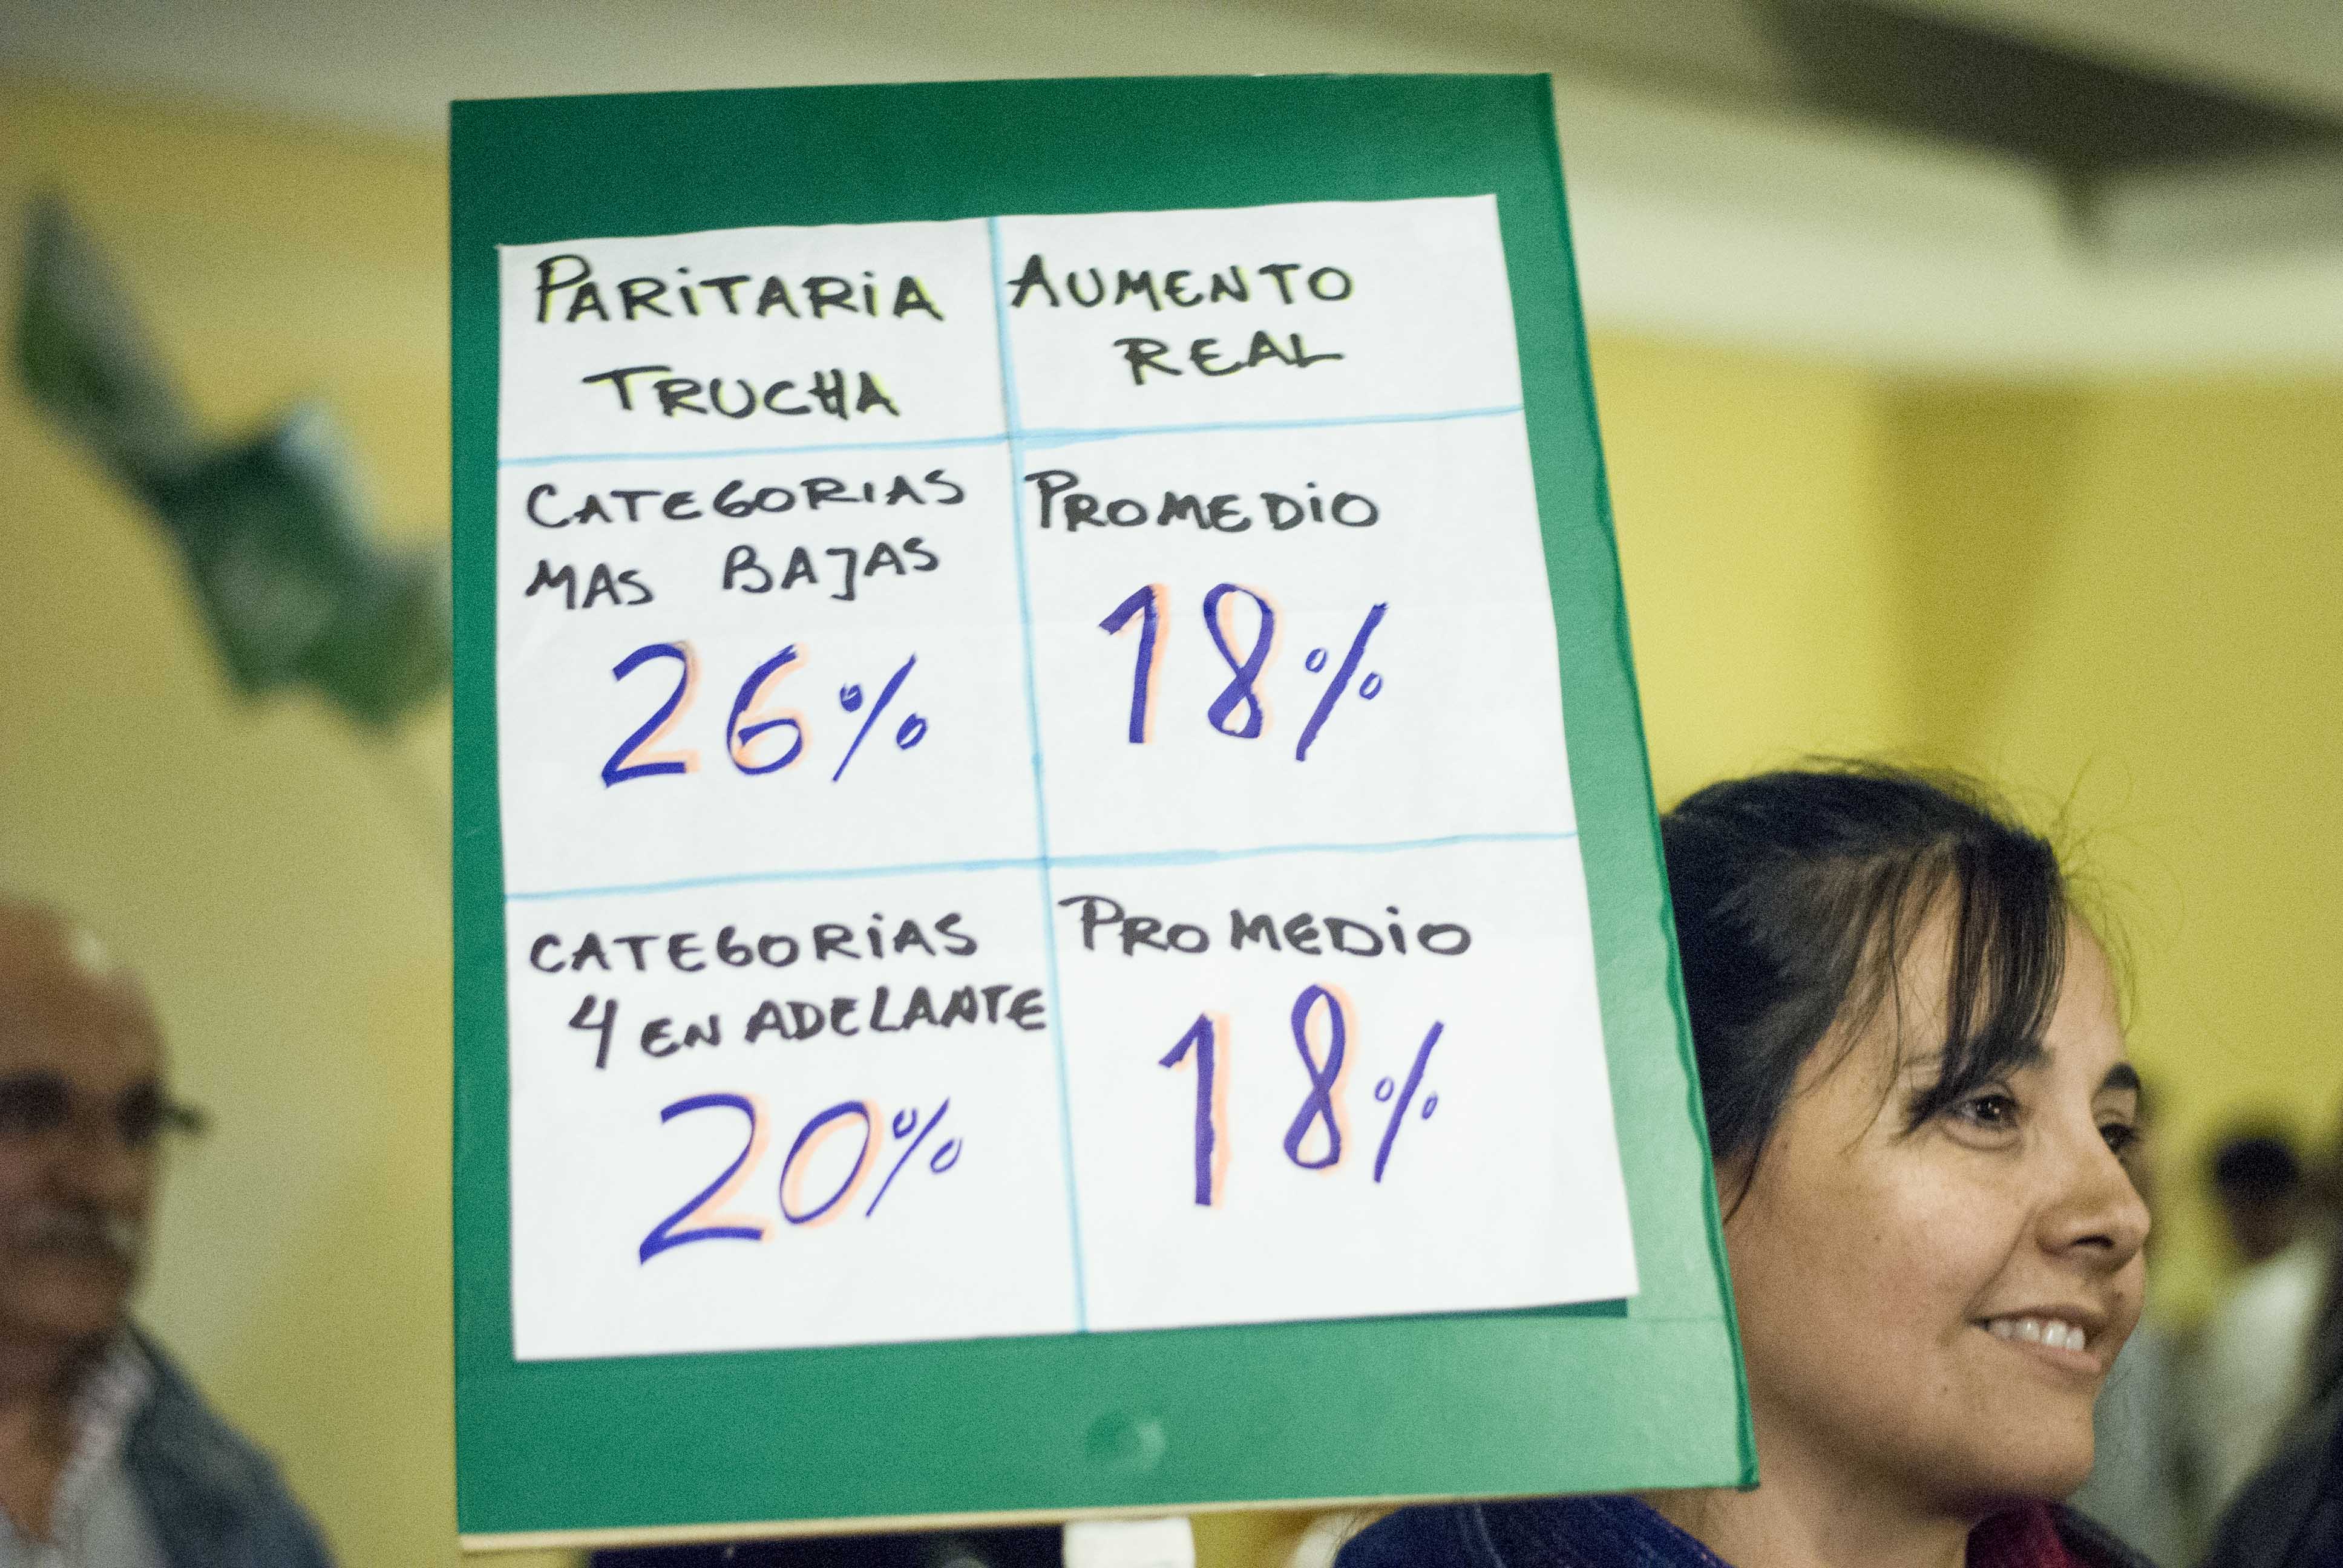 PARITARIA
TRUCHA
AUMENTO
REAL
CATEGORIAS
MAS BAJAS
26%
PROMEDIO
18%
CATEGORIAS
4 EN ADELANTE
20%
PROMEDIO
18%